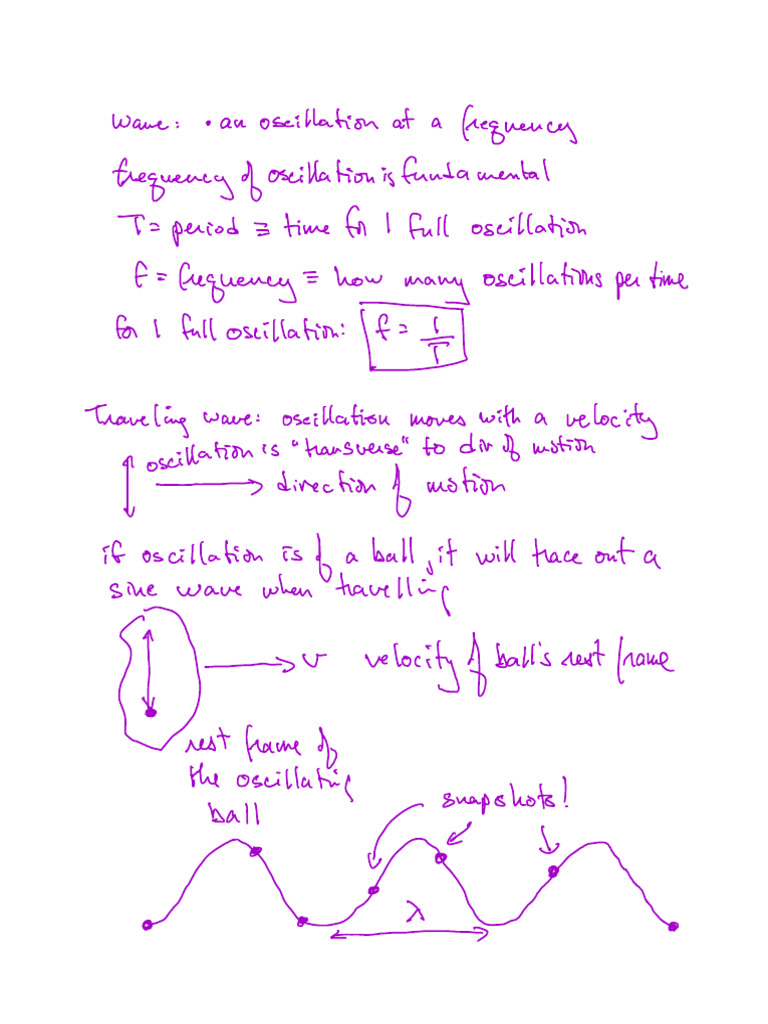 wave: • an oscillation at a frequency
frequency of oscillation is fundamental
T = period ≡ time for 1 full oscillation
f = frequency ≡ how many oscillations per time
for 1 full oscillation: f = 1/T
Traveling wave: oscillation moves with a velocity
oscillation is "transverse" to dir of motion
direction of motion
if oscillation is of a ball, it will trace out a
sine wave when travelling
v velocity of ball's rest frame
rest frame of
the oscillating
ball
snapshots!
λ